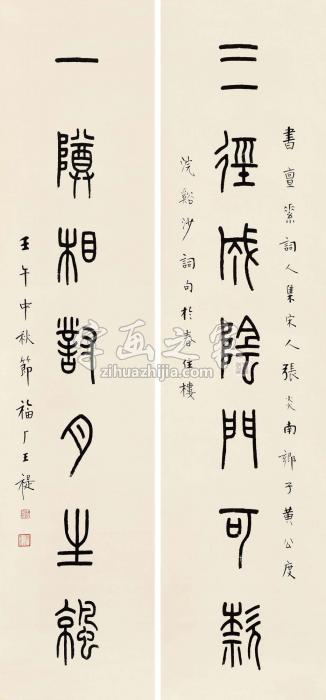 三徑成陰門可款
書亶素詞人集宋人張炎南鄉子黃公度
浣谿沙詞句於春住樓
一隫相對月生
壬午中秋節福厂王禔
字画之家
zihuazhijia.com